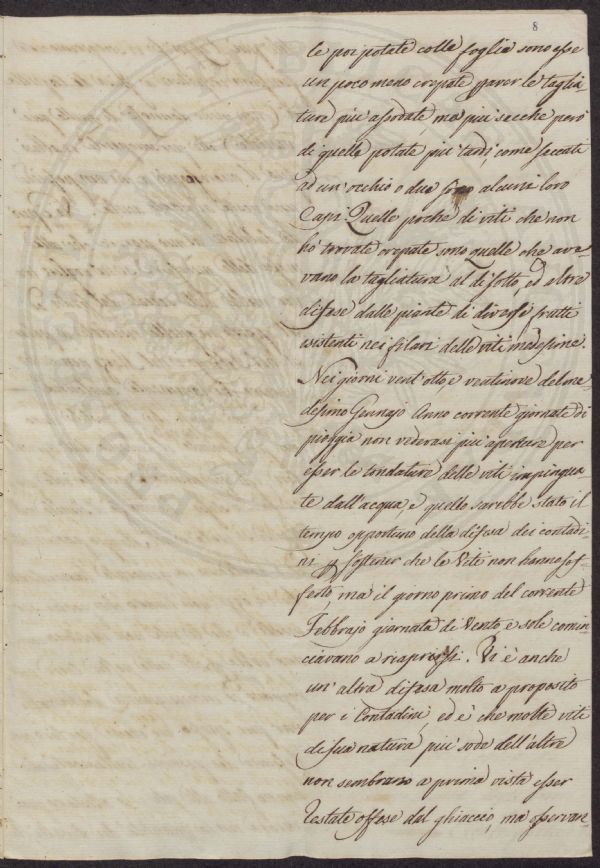 8
le poi potate colle foglia sono esse
un poco meno crepate, p aver le taglia-
ture più assodate, ma più secche però
di quelle potate più tardi, come seccati
ad un' occhio o due sono alcuni loro
Capi. Quelle poche di viti che non
hò trovate crepate sono quelle che ave-
vano la tagliatura al di sotto, ed oltre
difese dalle piante di diversi frutti
esistenti nei filari delle viti medesime.
Nei giorni vent'otto, e ventinove del me-
desimo Gennajo Anno corrente giornate di
pioggia non vederasi più aperture per
esser le tondature delle viti impingua-
te dall'acqua, e quello sarebbe stato il
tempo opportuno della difesa dei contadi-
ni p sostener che le Viti non hanno sof-
ferto, ma il giorno primo del corrente
Febbrajo giornata di Vento e sole comin-
ciavano a riaprirsi. Vi è anche
un' altra difesa molto a proposito
per i Contadini, ed è che molte viti
di sua natura più sode dell'altre
non sembrano a prima vista esser
restate offese dal ghiaccio, ma osservan-